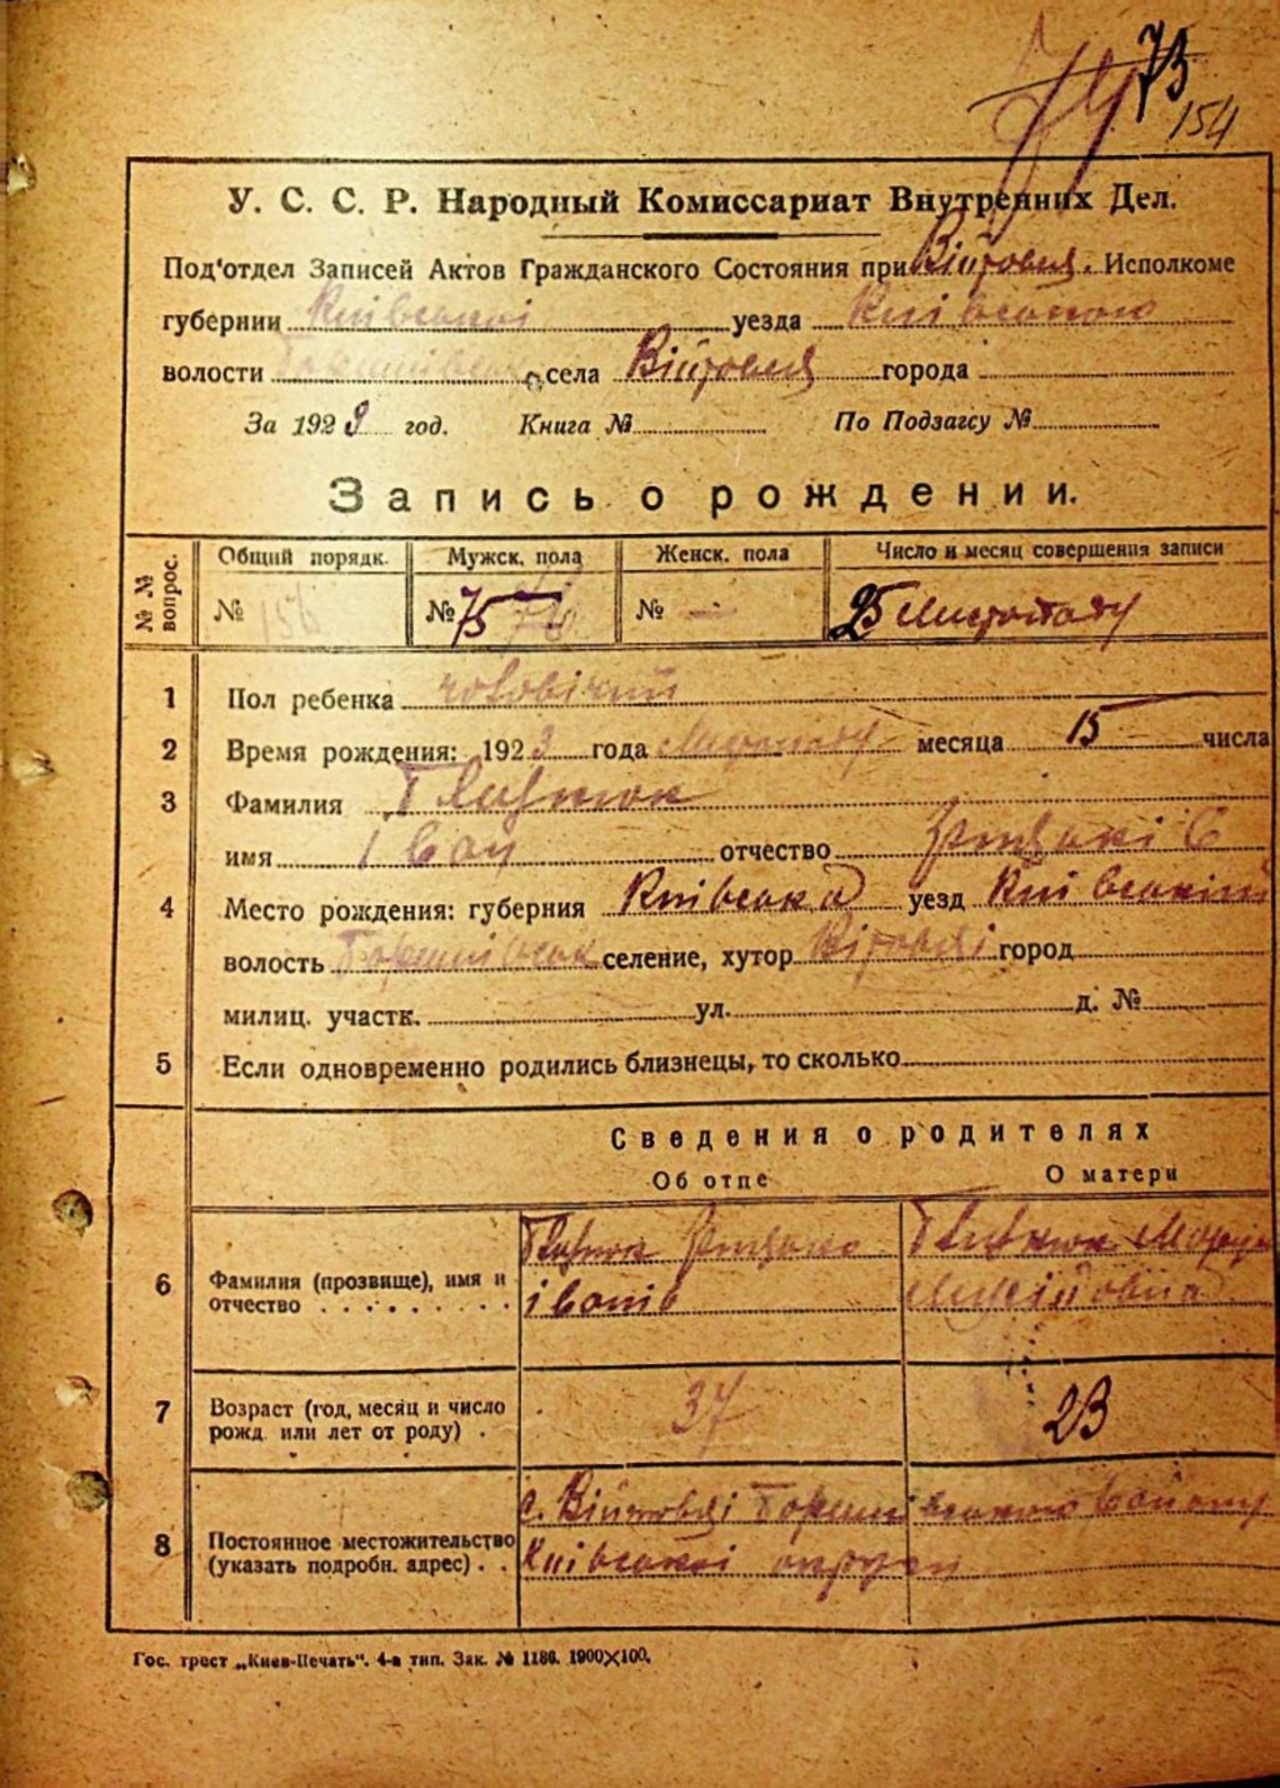 73
154
У. С. С. Р. Народный Комиссариат Внутренних Дел.
Под'отдел Записей Актов Гражданского Состояния при Війтовец. Исполкоме
губернии Київської уезда Київського
волости села Війтовця города
За 1923 год. Книга № По Подзагсу №
Запись о рождении.
№ № вопрос. Общий порядк. Мужск. пола Женск. пола Число и месяц совершения записи
№ 156 № 75 № — 25 Листопаду
1 Пол ребенка чоловічий
2 Время рождения: 1923 года Листопаду месяца 15 числа
3 Фамилия
имя Іван отчество
4 Место рождения: губерния Київська уезд Київський
волость селение, хутор город
милиц. участк. ул. д. №
5 Если одновременно родились близнецы, то сколько
Сведения о родителях
Об отце О матери
6 Фамилия (прозвище), имя и
отчество . . . . . . . . . Іванів
7 Возраст (год, месяц и число
рожд. или лет от роду) . 37 23
8 Постоянное местожительство
(указать подробн. адрес) . . Київської округи
Гос. трест „Киев-Печать“. 4-я тип. Зак. № 1186. 1900×100.